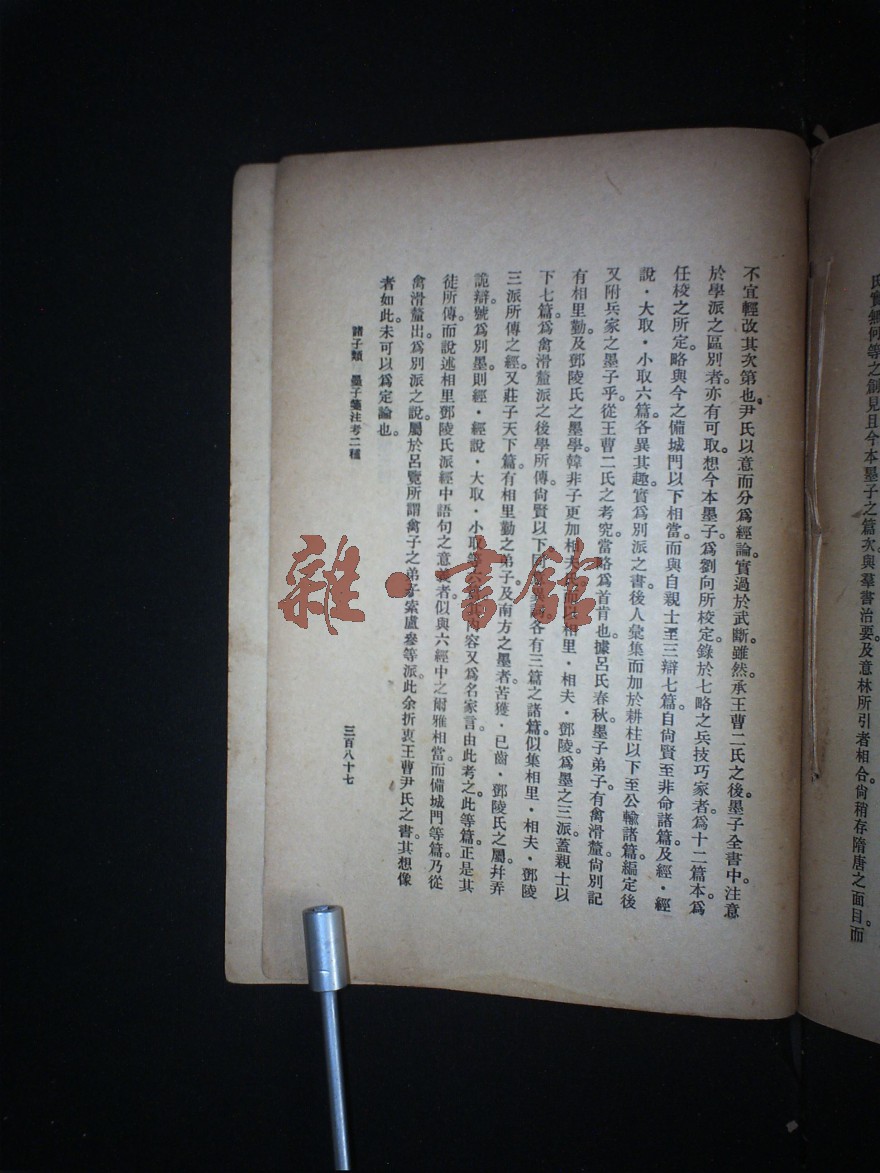 氏實
何等之創見且今本墨子之篇次與羣書治要及意林所引者相合尙稍存隋唐之面目而
不宜輕改其次第也尹氏以意而分爲經論實過於武斷雖然承王曹二氏之後墨子全書中注意
於學派之區別者亦有可取想今本墨子爲劉向所校定錄於七略之兵技巧家者爲十二篇本爲
任校之所定略與今之備城門以下相當而與自親士至三辯七篇自尙賢至非命諸篇及經・經
說・大取・小取六篇各異其趣實爲別派之書後人彙集而加於耕柱以下至公輸諸篇編定後
又附兵家之墨子乎從王曹二氏之考究當略爲首肯也據呂氏春秋墨子弟子有禽滑釐尙別記
有相里勤及鄧陵氏之墨學韓非子更加相夫氏而以相里・相夫・鄧陵爲墨之三派蓋親士以
下七篇爲禽滑釐派之後學所傳尙賢以下同各有三篇之諸篇似集相里・相夫・鄧陵
三派所傳之經又莊子天下篇有相里勤之弟子及南方之墨者苦獲・已齒・鄧陵氏之屬幷弄
詭辯號爲別墨則經・經說・大取・小取等六內容又爲名家言由此考之此等篇正是其
徒所傳而說述相里鄧陵氏派經中語句之意義者似與六經中之爾雅相當而備城門等篇乃從
禽滑釐出爲別派之說屬於呂覽所謂禽子之弟子索盧參等派此余折衷王曹尹氏之書其想像
者如此未可以爲定論也
諸子類 墨子箋注考二種
三百八十七
雜・書館